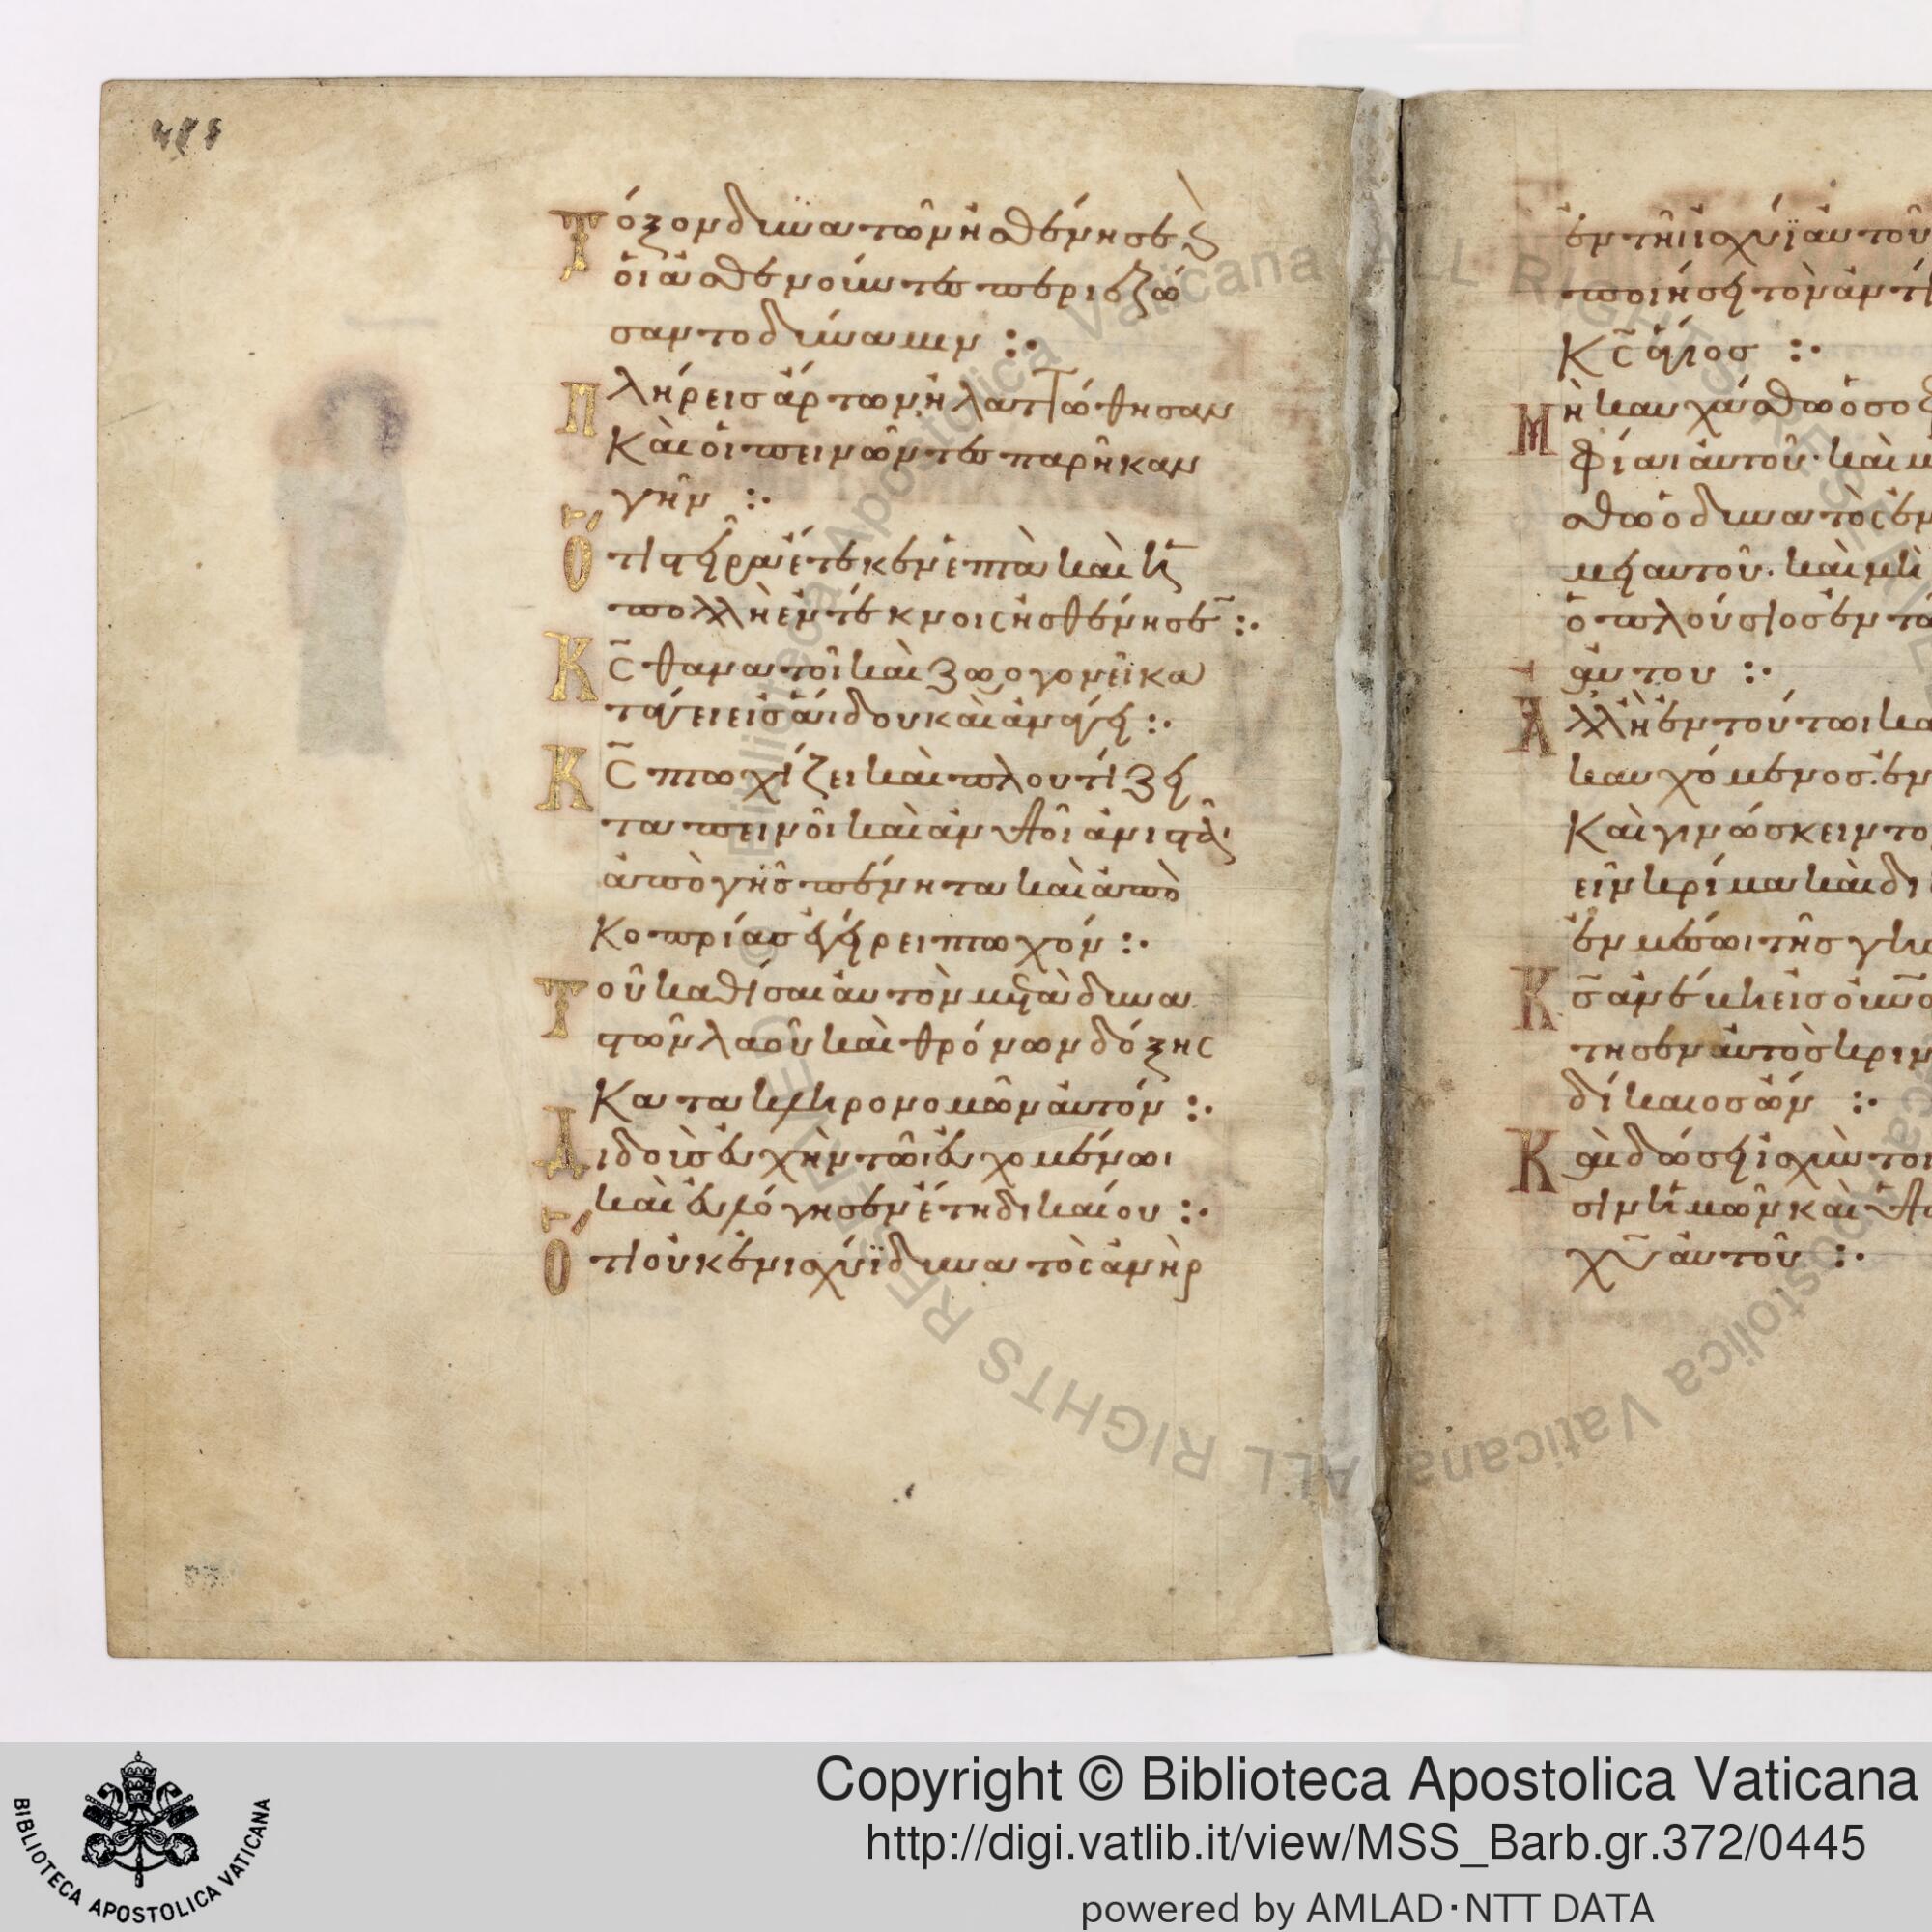 Τόξον δυνατῶν ἠσθένησε κ
οἱ ἀσθενοῦντες περιεζώ
σαντο δύναμιν :·
Πλήρεις ἄρτων ἠλαττώθησαν
Καὶ οἱ πεινῶντες παρῆκαν
γῆν :·
Ὅτι στεῖρα ἔτεκεν ἑπτὰ καὶ ἡ
πολλὴ ἐν τέκνοις ἠσθένησε :·
Κς θανατοῖ καὶ ζωογονεῖ κα
τάγει εἰς ἅιδου καὶ ἀνάγει :·
Κς πτωχίζει καὶ πλουτίζει
ταπεινοῖ καὶ ἀνυψοῖ ἀνιστᾶι
ἀπὸ γῆς πένητα καὶ ἀπὸ
Κοπρίας ἐγείρει πτωχόν :·
Τοῦ καθίσαι αὐτὸν μετὰ δυνα
στῶν λαοῦ καὶ θρόνων δόξης
Κατακληρονομῶν αὐτόν :·
Διδοὺς εὐχὴν τῶι εὐχομένωι
καὶ εὐλόγησεν ἔτη δικαίου :·
Ὅτι οὐκ ἐν ισχύϊ δυνατὸς ἀνὴρ
ἐν τῆι ἰσχύϊ αὐτοῦ
ποιήσει τὸν ἀντί
Κς ἅγιος :·
Μὴ καυχάσθω ὁ σοφ
φίαι αὐτοῦ· καὶ μ
σθω ὁ δυνατὸς ἐν
μει αὐτοῦ· καὶ μὴ
ὁ πλούσιος ἐν τ
αυτου :·
Ἀλλ' ἢ ἐν τούτωι κα
καυχόμενος. ἐν
Καὶ γινώσκειν το
εῖν κρίμα καὶ δι
ἐν μέσωι τῆς γῆ
Κς ἀνέβη εἰς οὐνο
τησεν αὐτὸς κριν
δίκαιος ὤν :·
Καὶ δώσει ἰσχὺν τοι
σιν ἡμῶν καὶ ὑψ
χυ αὐτοῦ :·
Copyright © Biblioteca Apostolica Vaticana
http://digi.vatlib.it/view/MSS_Barb.gr.372/0445
powered by AMLAD·NTT DATA
BIBLIOTECA APOSTOLICA VATICANA